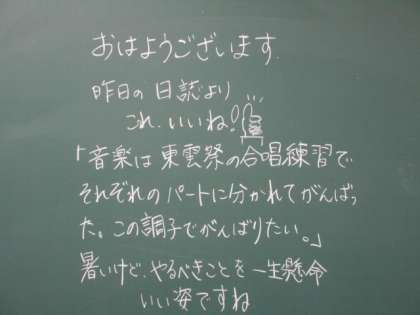 おはようございます.
昨日の日誌より
これ、いいね!
「音楽は東雲祭の合唱練習で
それぞれのパートに分かれてがんばっ
た。この調子でがんばりたい。」
暑いけど、やるべきことを一生懸命
いい姿ですね